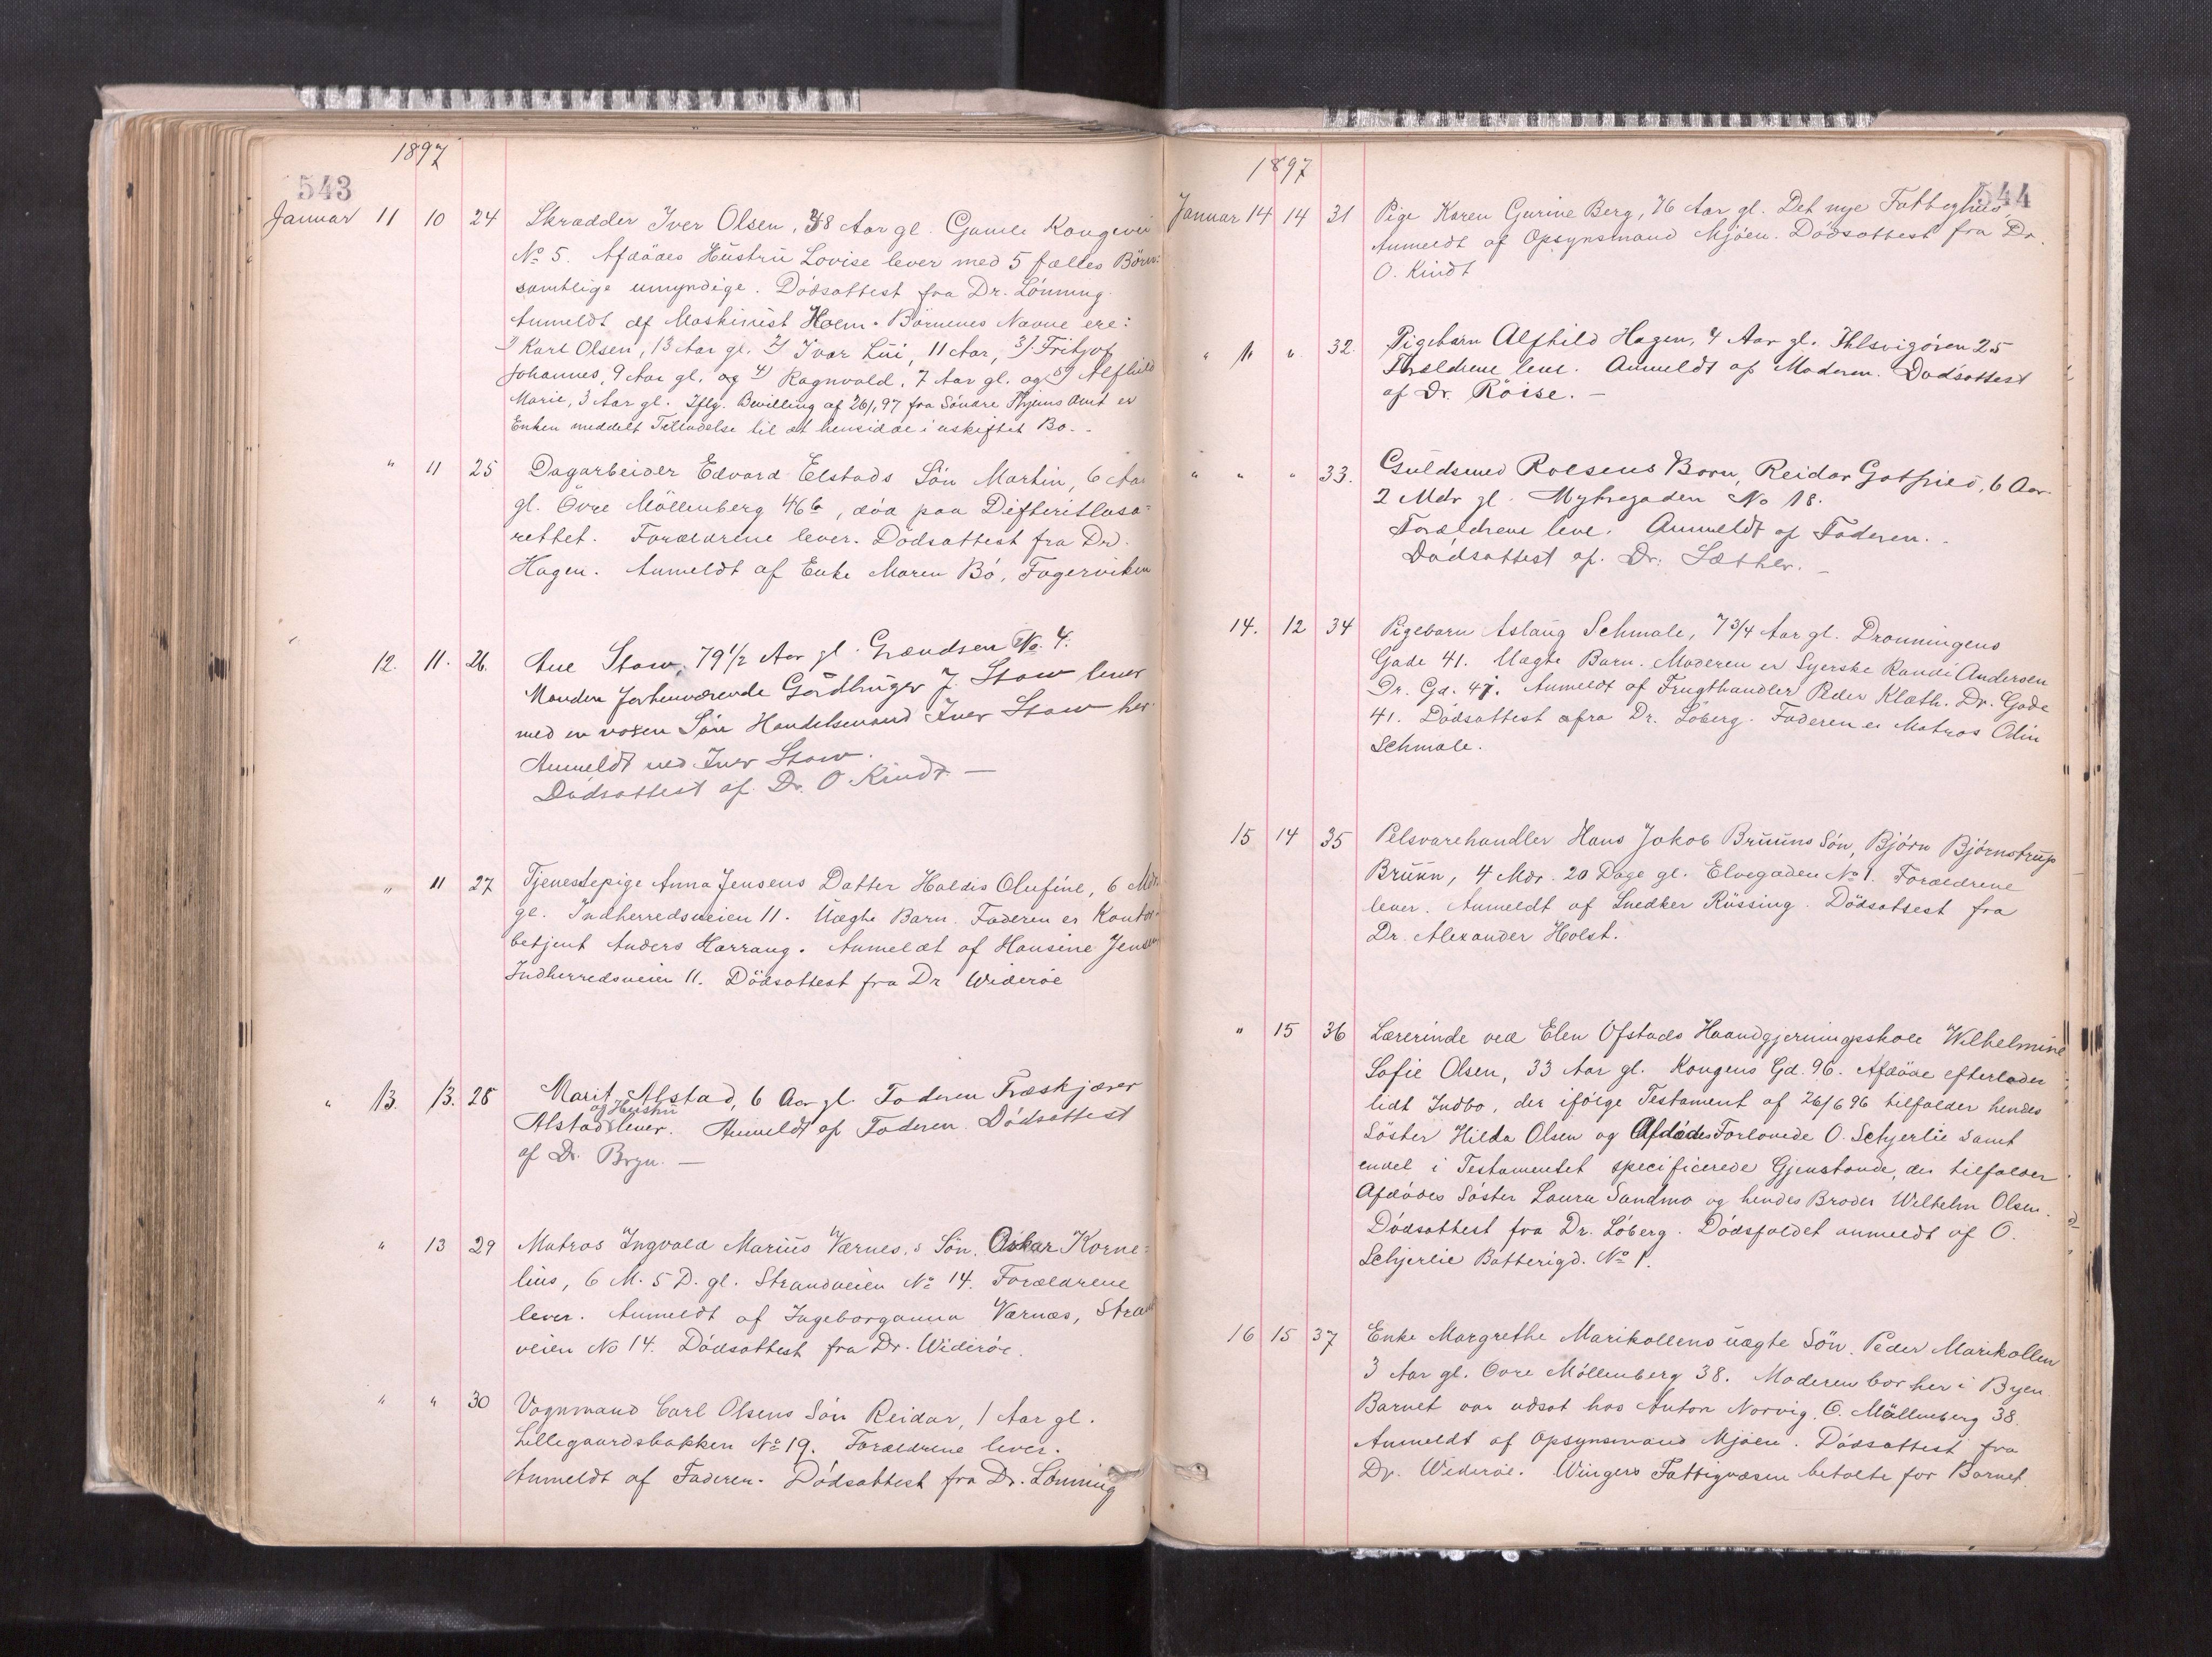 1897
543
Januar 11 10 24 Skrædder Iver Olsen, 38 Aar gl. Gamle Kongevei
No 5. Afdödes Hustru Lovise lever med 5 fælles Börn:
samtlige umyndige. Dödsattest fra Dr. Lönning.
Anmeldt af Maskinist Holm. Börnenes Navne ere:
1) Karl Olsen, 13 Aar gl. 2) Ivar Lui, 11 Aar, 3) Fritjof
Johannes, 9 Aar gl. og 4) Ragnvald, 7 Aar gl. og 5) Alfhild
Marie, 3 Aar gl. Iflg. Bevilling af 26/1 97 fra Söndre Thjems Amt er
Enken meddelt Tilladelse til at hensidde i uskiftet Bo.
" 11 25 Dagarbeider Edvard Elstads Sön Martin, 6 Aar
gl. Övre Möllenberg 46b, död paa Difteritlasa=
rettet. Forældrene lever. Dödsattest fra Dr.
Hagen. Anmeldt af Enke Maren Bö, Fagerviken
12. 11. 26. Ane Stow, 79 1/2 Aar gl. Grændsen No. 4.
Manden forhenværende Gårdbruger J. Stow lever
med en voxen Sön Handelsmand Iver Stow her.
Anmeldt ved Iver Stow.
Dödsattest af Dr. O Kindt. —
" 11 27 Tjenestepige Anna Jensens Datter Haldis Olufine, 6 Mdr.
gl. Indherredsveien 11. Uægte Barn. Faderen er Kontor-
betjent Anders Harrang. Anmeldt af Hansine Jensen
Indherredsveien 11. Dödsattest fra Dr Wideröe
" 13. 13. 28 Marit Alstad, 6 Aar gl. Faderen Træskjærer
og Hustru
Alstad lever. Anmeldt af Faderen. Dödsattest
af Dr. Bryn. —
" 13 29 Matros Ingvald Marius Værnes,s Sön, Oskar Korne=
lius, 6 M. 5 D. gl. Strandveien No 14. Forældrene
lever. Anmeldt af Ingeborganna Værnæs, Strand
veien No 14. Dödsattest fra Dr. Wideröe.
" " 30 Vognmand Carl Olsens Sön Reidar, 1 Aar gl.
Lillegaardsbakken No 19. Forældrene lever.
Anmeldt af Faderen. Dödsattest fra Dr. Lönning
1897
544
Januar 14 14 31 Pige Karen Gurine Berg, 76 Aar gl. Det nye Fattighus.
Anmeldt af Opsynsmand Mjöen. Dödsattest fra Dr.
O. Kindt
" 14 " 32. Pigebarn Alfhild Hagen, 4 Aar gl. Ihlsvigören 25
Forældrene leve. Anmeldt af Moderen. Dödsattest
af Dr. Röise. —
" " " 33. Guldsmed Rolsens Barn, Reidar Gotfried, 6 Aar
2 Mdr gl. Mytregaden No 18.
Forældrene leve. Anmeldt af Faderen.
Dödsattest af. Dr. Sæther. —
14. 12 34 Pigebarn Aslaug Schmale, 7 3/4 Aar gl. Dronningens
Gade 41. Uægte Barn. Moderen er Syerske Randi Andersen
Dr. Gd. 41. Anmeldt af Frugthandler Peder Klæth. Dr. Gade
41. Dödsattest fra Dr. Löberg. Faderen er Matros Odin
Schmale.
15 14 35 Pelsvarehandler Hans Jakob Bruuns Sön, Björn Björnstrup
Bruun, 4 Mdr. 20 Dage gl. Elvegaden No 1. Forældrene
lever. Anmeldt af Snedker Rüssing. Dödsattest fra
Dr. Alexander Holst.
" 15 36 Lærerinde ved Elen Ofstads Haandgjerningsskole Wilhelmine
Sofie Olsen, 33 Aar gl. Kongens Gd. 96. Afdöde efterlader
lidt Indbo, der ifölge Testament af 26/6 96 tilfalder hendes
Söster Hilda Olsen og Afdödes Forlovede O. Schjerlie samt
endel i Testamentet specificerede Gjenstande, der tilfalder
Afdödes Söster Laura Sandmo og hendes Broder Wilhelm Olsen.
Dödsattest fra Dr. Löberg. Dödsfaldet anmeldt af O.
Schjerlie Batterigd. No 1.
16 15 37 Enke Margrethe Marikollens uægte Sön, Peder Marikollen
3 Aar gl. Övre Möllenberg 38. Moderen bor her i Byen.
Barnet var udsat hos Anton Norvig, Ö. Möllenberg 38.
Anmeldt af Opsynsmand Mjöen. Dödsattest fra
Dr. Wideröe. Wingers Fattigvæsen betalte for Barnet.